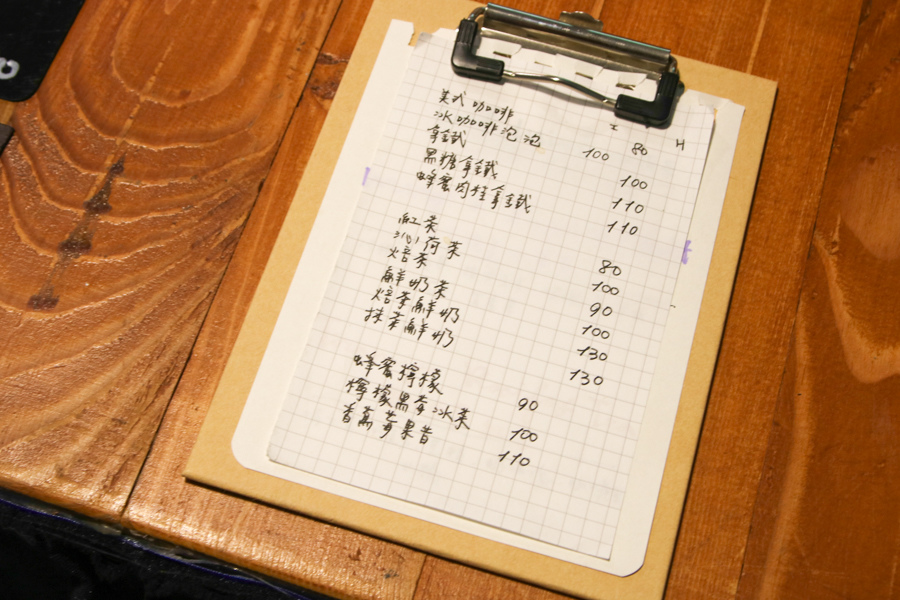 I H
美式咖啡 80
冰咖啡泡泡 100
拿鐵 100
黑糖拿鐵 110
蜂蜜肉桂拿鐵 110
紅茶 80
沁荷茶 100
焙茶 90
鮮奶茶 100
焙茶鮮奶 130
抹茶鮮奶 130
蜂蜜檸檬 90
檸檬黑莓冰茶 100
果昔 110